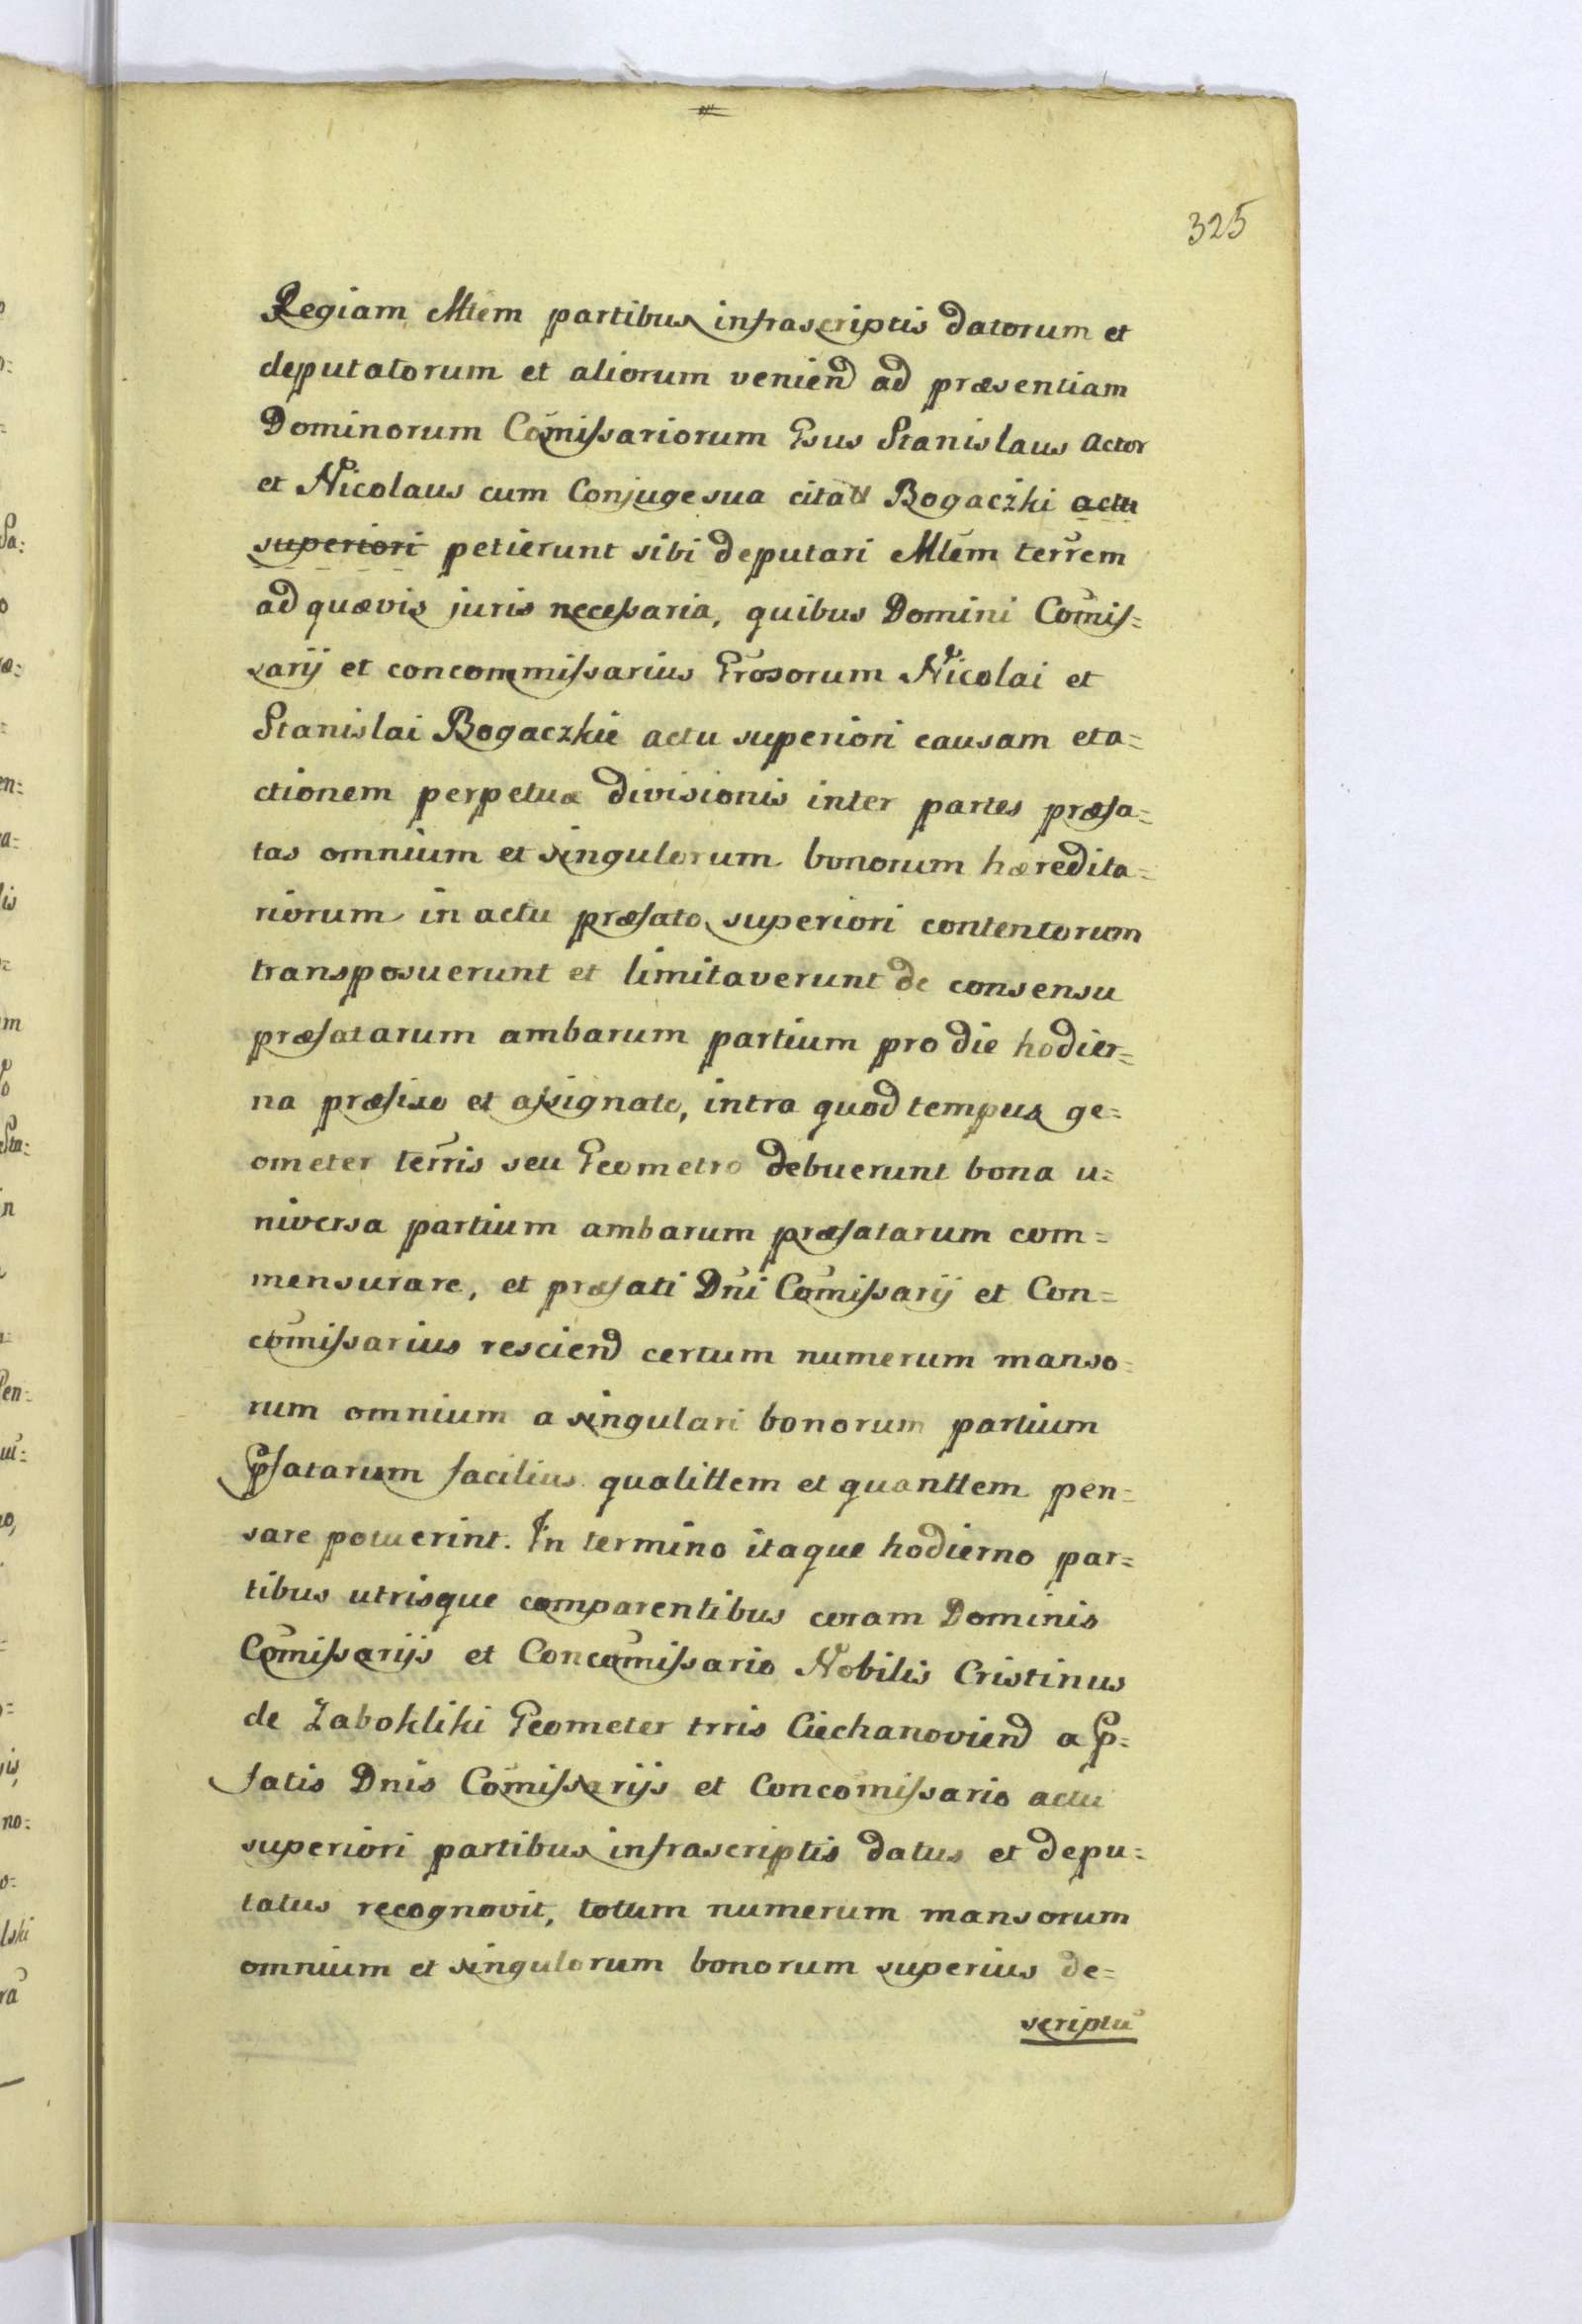 325
Regiam Mtem partibus infrascriptis datorum et
deputatorum et aliorum veniend ad præsentiam
Dominorum Com̃issariorum Gsus Stanislaus Actor
et Nicolaus cum Conjuge sua citati Bogaczki actu
superiori petierunt sibi deputari Mtem terrem
ad quævis juris necessaria, quibus Domini Com̃is=
sarij et concommissarius Grosorum Nicolai et
Stanislai Bogaczkie actu superiori causam et a=
ctionem perpetuæ divisionis inter partes præfa=
tas omnium et singulorum bonorum hæredita=
riorum in actu præfato superiori contentorum
transposuerunt et limitaverunt de consensu
præfatarum ambarum partium pro die hodier=
na præfixo et assignato, intra quod tempus ge=
ometer terris seu Geometro debuerunt bona u=
niversa partium ambarum præfatarum com=
mensurare, et præfati Dn̄i Com̃issarij et Con=
com̃issarius resciend certum numerum manso=
rum omnium a singulari bonorum partium
pfatarum facilius qualittem et quanttem pen=
sare potuerint. In termino itaque hodierno par=
tibus utrisque comparentibus coram Dominis
Com̃issarijs et Concom̃issario Nobilis Cristinus
de Zabokliki Geometer trris Ciechanoviend a p=
fatis Dnis Com̃issarijs et Concom̃issario actu
superiori partibus infrascriptis datus et depu=
tatus recognovit, totum numerum mansorum
omnium et singulorum bonorum superius de=
scriptũ